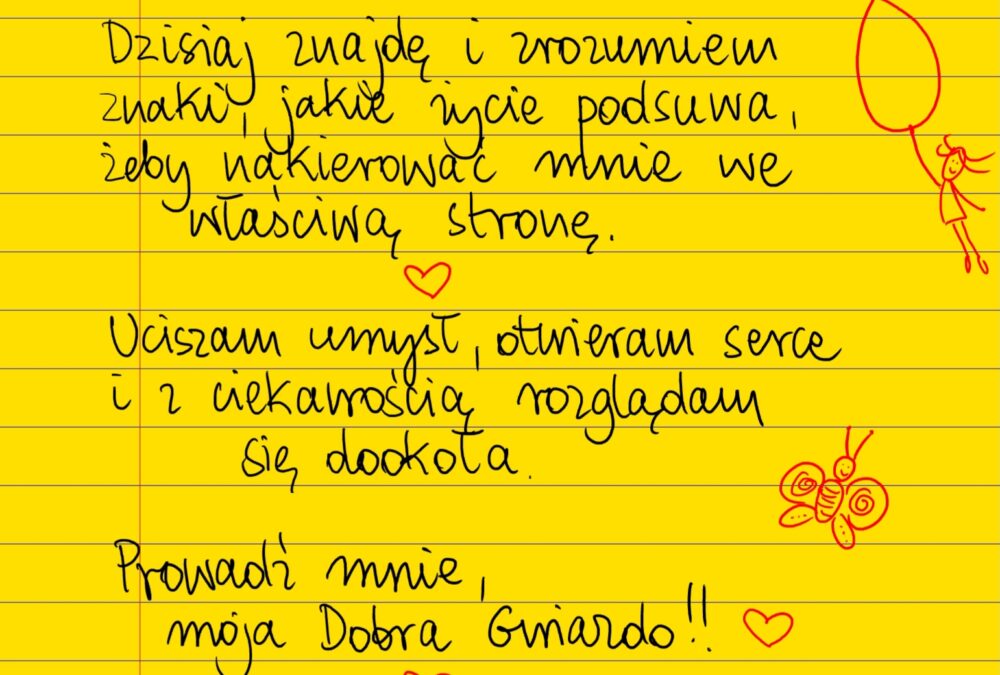 Dzisiaj znajdę i zrozumiem
znaki, jakie życie podsuwa,
żeby nakierować mnie we
właściwą stronę.
Uciszam umysł, otwieram serce
i z ciekawością rozglądam
się dookoła.
Prowadź mnie,
moja Dobra Gwiazdo!!